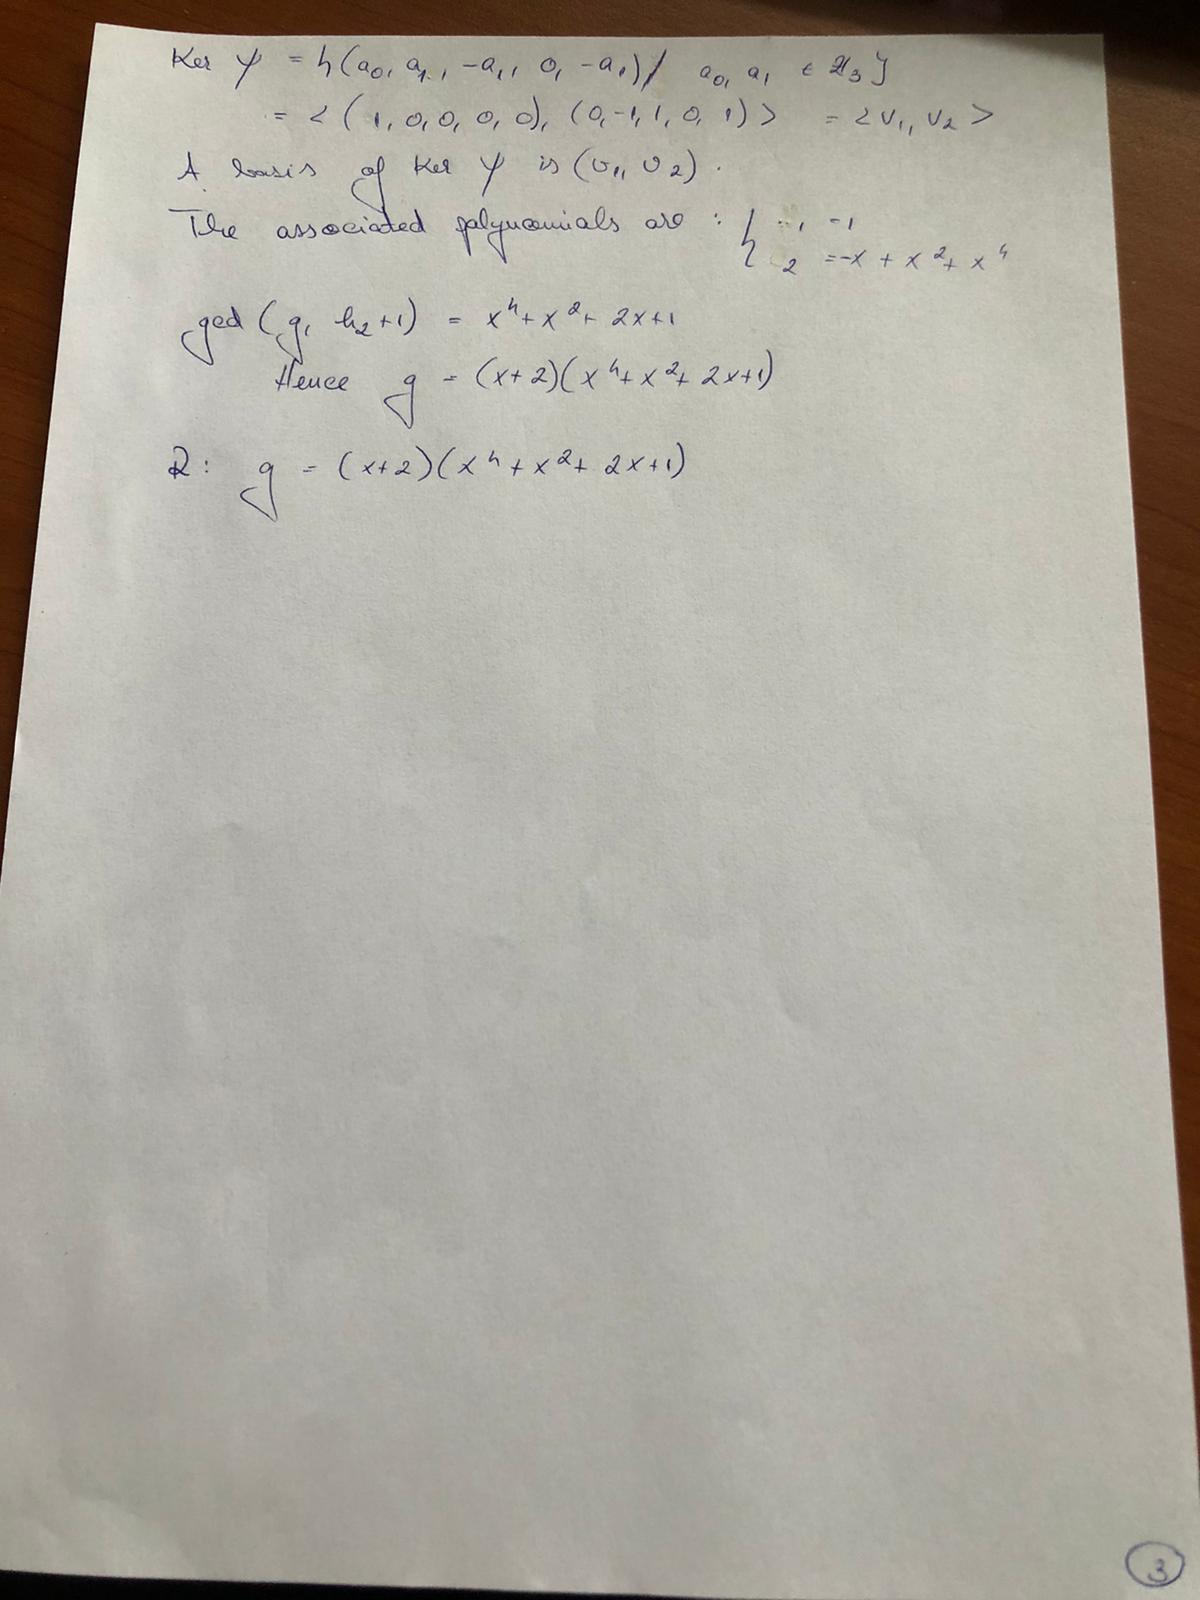 Ker φ = {(a0, a1, -a1, 0, -a1) / a0, a1 ∈ Z3}
= < (1, 0, 0, 0, 0), (0, -1, 1, 0, 1) > = <v1, v2>
A basis of Ker φ is (v1, v2).
The associated polynomials are : {
2 = -x + x^2 + x^4
gcd (g, h2+1) = x^4 + x^2 + 2x+1
Hence g = (x+2)(x^4 + x^2 + 2x+1)
R: g = (x+2)(x^4 + x^2 + 2x+1)
3